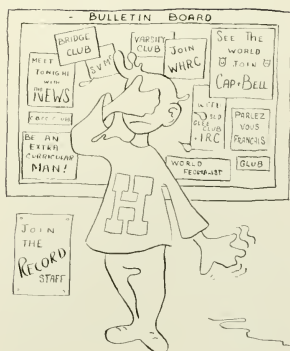 - BULLETIN BOARD
BRIDGE
CLUB
VARSITY
CLUB
JOIN
WHRC
SEE THE
WORLD
JOIN
CAP & BELL
MEET
TONIGHT
WITH
THE
NEWS
GLEE
CLUB
+ IRC
PARLEZ
VOUS
FRANÇAIS
CLUB
BE AN
EXTRA
CURRICULAR
MAN!
WORLD
FEDERALIST
H
JOIN
THE
RECORD
STAFF